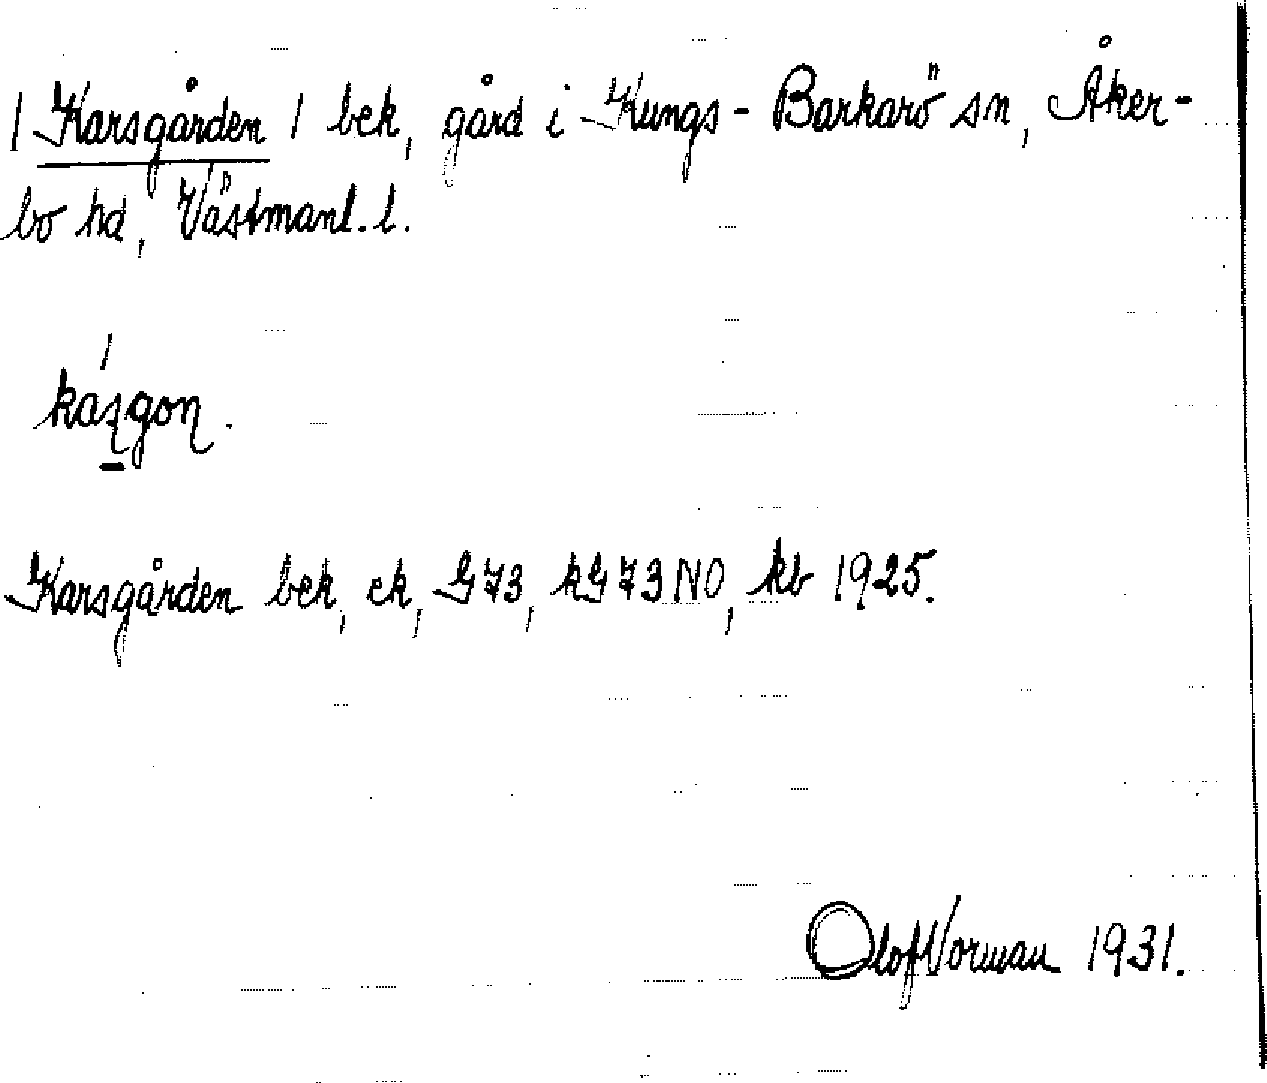 / Karsgården / bek, gård i Kungs-Barkarö sn, Åker-
bo hd, Västmanl. l.
kas̱gon.
Karsgården bek, ek, G73, kG73NO, kb 1925.
Olof Norman 1931.